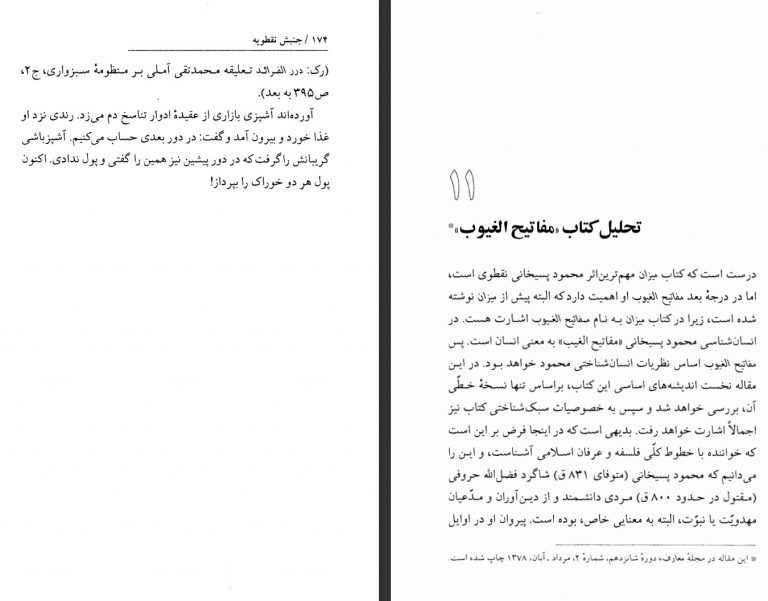 ۱۷۴ / جنبش نقطویه
(رک: درر الفرائد تعلیقه محمدتقی آملی بر منظومهٔ سبزواری، ج۲،
ص۳۹۵ به بعد).
آورده‌اند آشپزی بازاری از عقیدهٔ ادوار تناسخ دم می‌زد. رندی نزد او
غذا خورد و بیرون آمد و گفت: در دور بعدی حساب می‌کنیم. آشپزباشی
گریبانش را گرفت که در دور پیشین نیز همین را گفتی و پول ندادی. اکنون
پول هر دو خوراک را بپرداز!
۱۱
تحلیل کتاب «مفاتیح الغیوب»*
درست است که کتاب میزان مهم‌ترین اثر محمود پسیخانی نقطوی است،
اما در درجهٔ بعد مفاتیح الغیوب او اهمیت دارد که البته پیش از میزان نوشته
شده است، زیرا در کتاب میزان به نام مفاتیح الغیوب اشارت هست. در
انسان‌شناسی محمود پسیخانی «مفاتیح الغیب» به معنی انسان است. پس
مفاتیح الغیوب اساس نظریات انسان‌شناختی محمود خواهد بود. در این
مقاله نخست اندیشه‌های اساسی این کتاب، براساس تنها نسخهٔ خطّی
آن، بررسی خواهد شد و سپس به خصوصیات سبک‌شناختی کتاب نیز
اجمالاً اشارت خواهد رفت. بدیهی است که در اینجا فرض بر این است
که خواننده با خطوط کلّی فلسفه و عرفان اسلامی آشناست، و این را
می‌دانیم که محمود پسیخانی (متوفای ۸۳۱ ق) شاگرد فضل‌الله حروفی
(مقتول در حدود ۸۰۰ ق) مردی دانشمند و از دین‌آوران و مدّعیان
مهدویّت یا نبوّت، البته به معنایی خاص، بوده است. پیروان او در اوایل
* این مقاله در مجلهٔ معارف، دورهٔ شانزدهم، شمارهٔ ۲، مرداد ـ آبان، ۱۳۷۸ چاپ شده است.